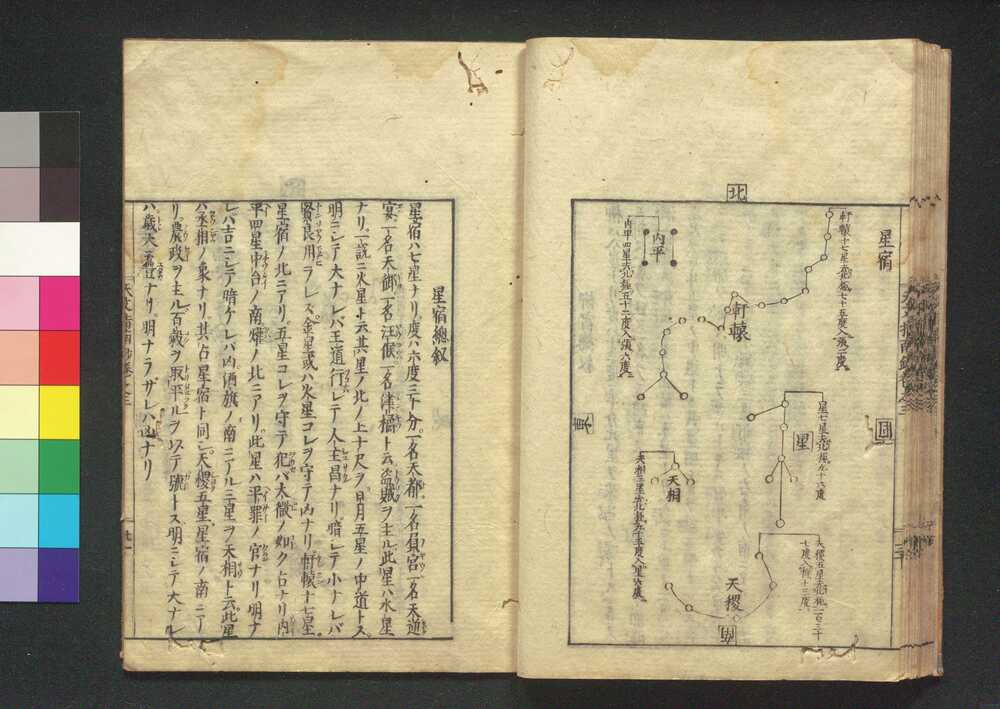 星宿
北
軒轅十七星去北極七十五度入張二度
軒轅
内平
内平四星去北極五十二度入張六度
西
東
星
星七星去北極九十六度
天相
天相三星去北極九十五度入星六度
天稷五星去北極一百三十
七度入柳十三度
天稷
南
星宿總叙
星宿ハ七星ナリ度ハ六度三十分一名天都一名員宮一名天
宴一名天御一名津橋ト云盗賊ヲ主ル此星ハ水星
ナリ一説ニ火星ト云其星ノ北ノ上ナ尺ヲ日月五星ノ中道トス
明ニシテ大ナレバ王道行レテ人主昌ナリ暗シテ小ナレバ
賢良用ラレズ金星或ハ火星コレヲ守テ凶ナリ軒轅十七星
星宿ノ北ニアリ五星コレヲ守テ犯バ太微ノ如ク占ナリ内
平四星中台ノ南爟ノ北ニアリ此星ハ平罪ノ官ナリ明ナ
レバ吉ニシテ暗ケレバ凶酒旗ノ南ニアル三星ヲ天相ト云此星
ハ丞相ノ象ナリ其占星宿ト同シ天稷五星星宿ノ南ニア
リ農政ヲ主ル百穀ヲ取平ルヲ以テ號トス明ニシテ大ナレ
バ歳大ナリ明ナラザレバ凶ナリ